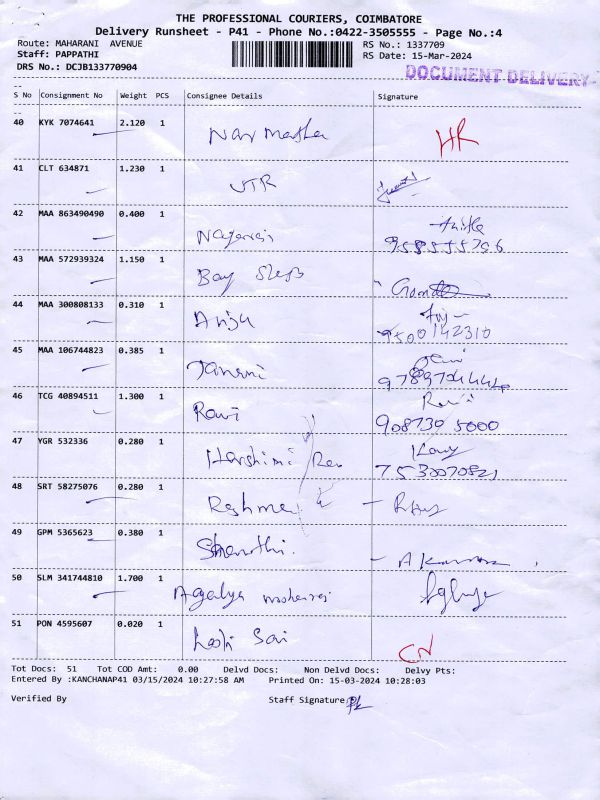 THE PROFESSIONAL COURIERS, COIMBATORE
Delivery Runsheet - P41 - Phone No.:0422-3505555 - Page No.:4
Route: MAHARANI AVENUE RS No.: 1337709
Staff: PAPPATHI RS Date: 15-Mar-2024
DRS No.: DCJB133770904 DOCUMENT DELIVERY
S No Consignment No Weight PCS Consignee Details Signature
40 KYK 7074641 2.120 1
41 CLT 634871 1.230 1 UTR
42 MAA 863490490 0.400 1 Nagaraj
43 MAA 572939324 1.150 1 Bay
44 MAA 300808133 0.310 1 Anju
9500142310
45 MAA 106744823 0.385 1 Janani
46 TCG 40894511 1.300 1 Ravi Ravi
908739 5000
47 YGR 532336 0.280 1 Harshini
7530070821
48 SRT 58275076 0.280 1 Reshma
49 GPM 5365623 0.380 1
50 SLM 341744810 1.700 1 Agalya
51 PON 4595607 0.020 1 Sai CN
Tot Docs: 51 Tot COD Amt: 0.00 Delvd Docs: Non Delvd Docs: Delvy Pts:
Entered By :KANCHANAP41 03/15/2024 10:27:58 AM Printed On: 15-03-2024 10:28:03
Verified By Staff Signature